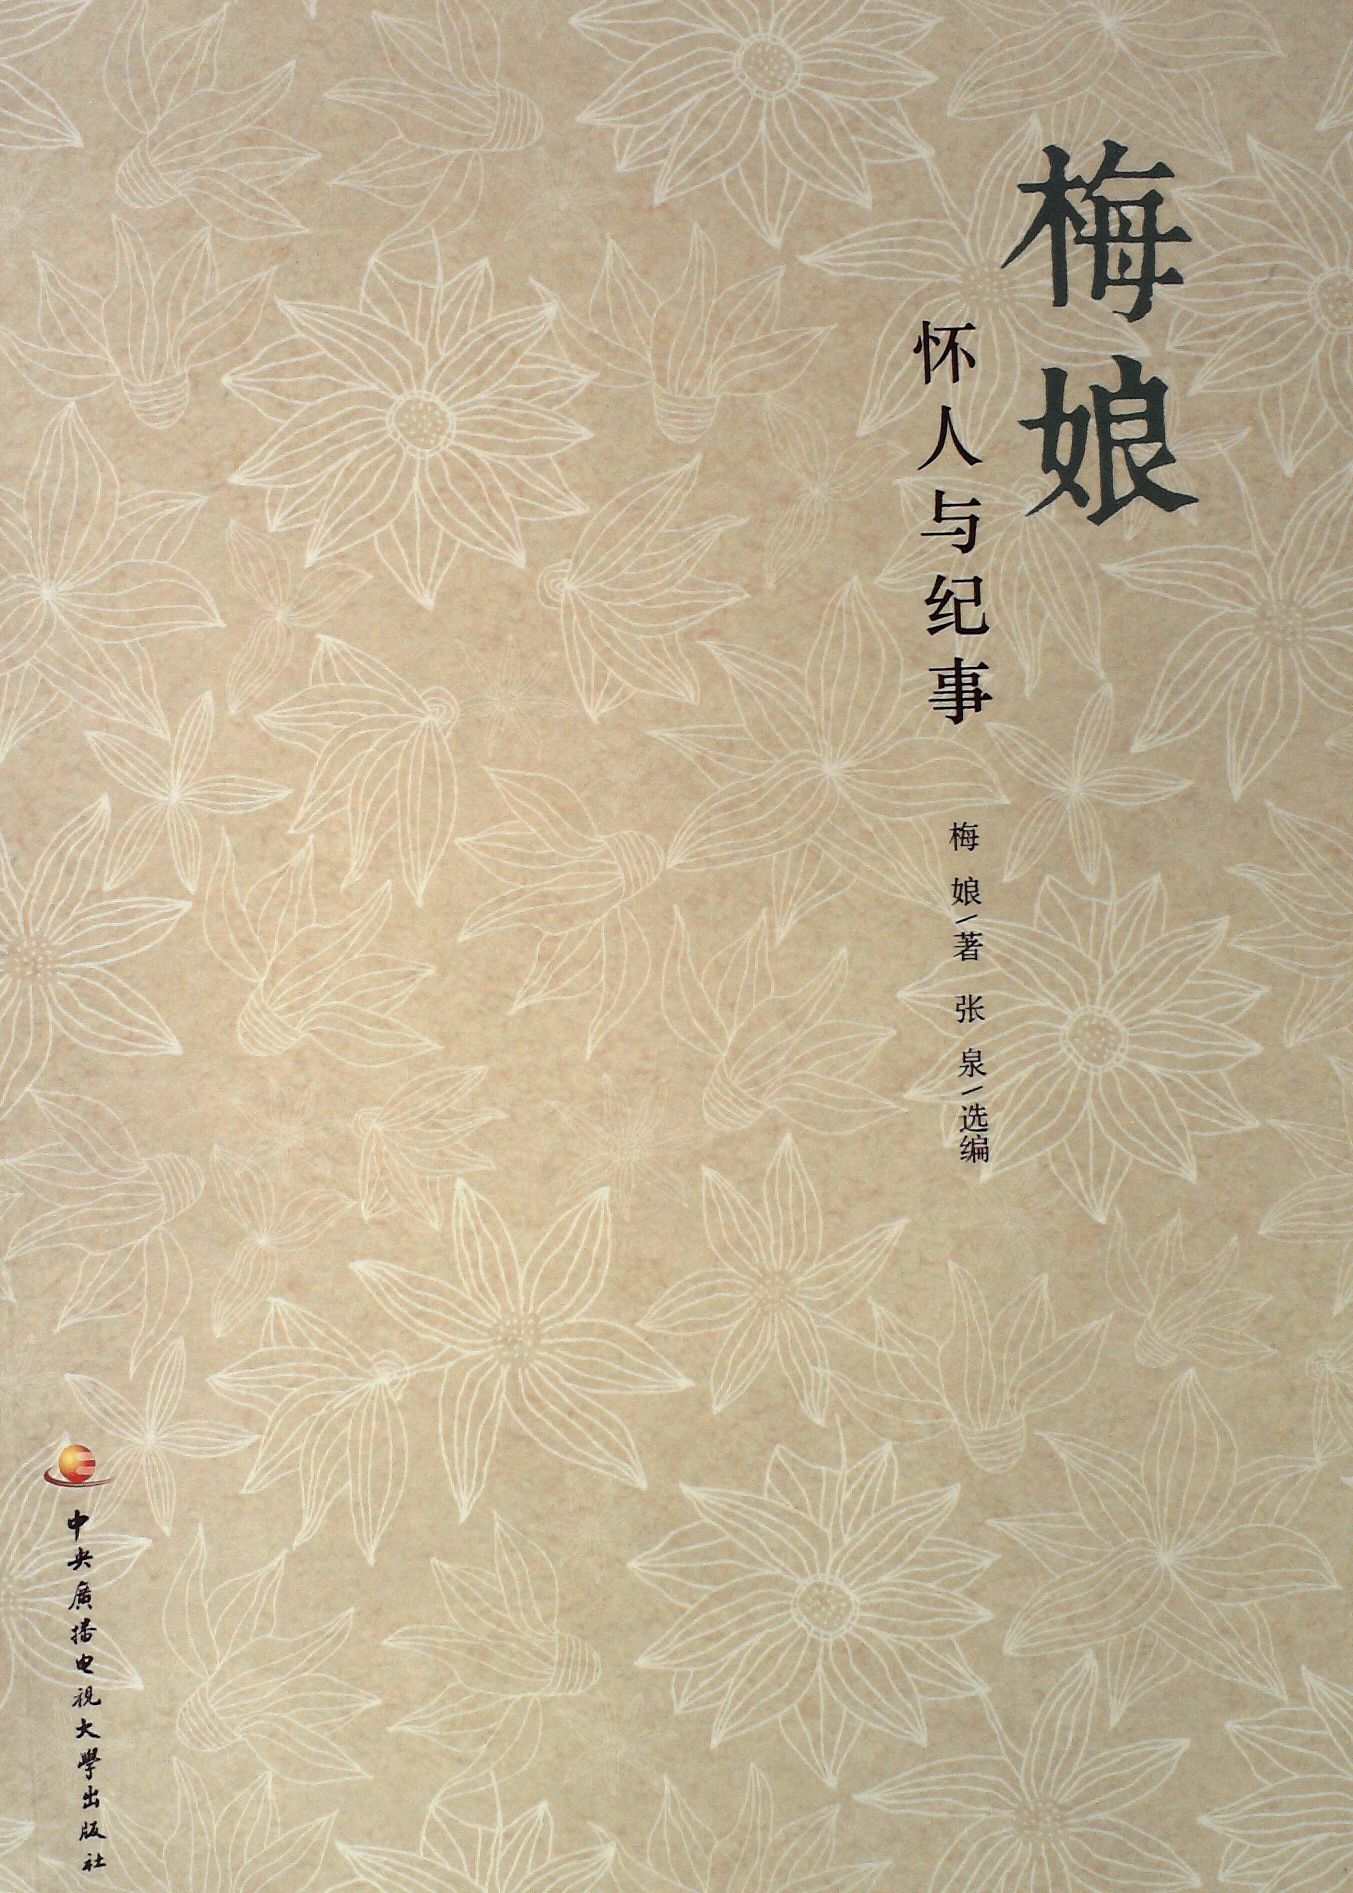 梅娘
怀人与纪事
梅娘/著 张泉/选编
中央廣播电视大學出版社